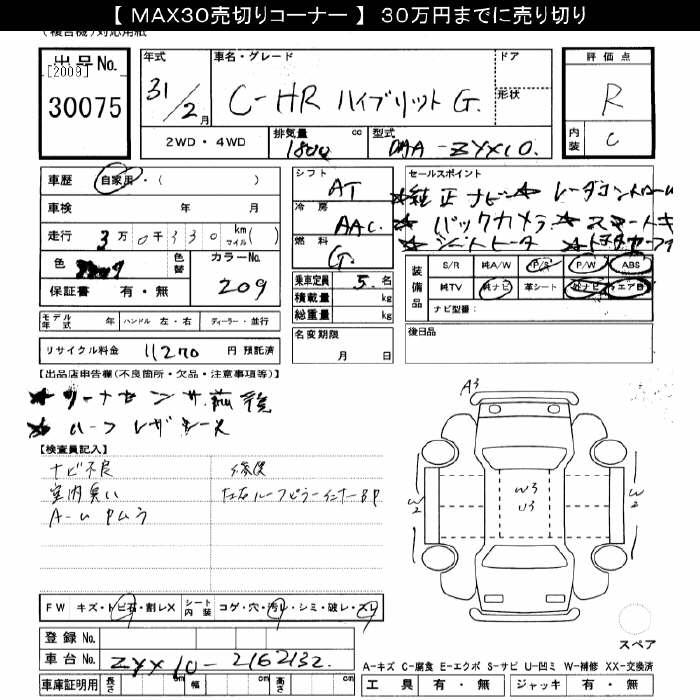 【 MAX30売切りコーナー 】 30万円までに売り切り
出品No.
[2009]
30075
年式
31/2月
車名・グレード
C-HR ハイブリット G.
ドア
形状
評価点
R
内装
C
2WD・4WD
排気量 1800 cc
型式
DAA-ZYX10.
車歴 自家用・( )
車検 年 月
走行 3万0千330 km マイル( )
色 209
色替
カラーNo. 209
保証書 有・無
シフト AT
冷房 AAC.
燃料 G.
乗車定員 5. 名
積載量 kg
総重量 kg
名変期限
月 日
セールスポイント
★純正ナビ★ レーダコントロール
★バックカメラ ★スマートキ
★シートヒータ
装備品
S/R 純A/W P/S P/W ABS
純TV 純ナビ 革シート 外ナビ エア B
ナビ型番:
後日品
モデル年式 年 ハンドル 左・右 ディーラー・並行
リサイクル料金 11270 円 預託済
【出品店申告欄(不良箇所・欠品・注意事項等)】
★ソーナセンサ 前後
★ハーフレザシース
【検査員記入】
ナビ不良
室内臭い
A-U Pムラ
修復
左右ルーフピラーインナーBP
A3
W2
W3
U3
W2
FW キズ・トビ石・割レX
シート内装 コゲ・穴・汚レ・シミ・破レ・スレ
登録 No.
車台 No. ZYX10-2162132.
車庫証明用 長さ cm 幅 cm 高さ cm
スペア
A-キズ C-腐食 E-エクボ S-サビ U-凹ミ W-補修 XX-交換済
工具 有・無 ジャッキ 有・無